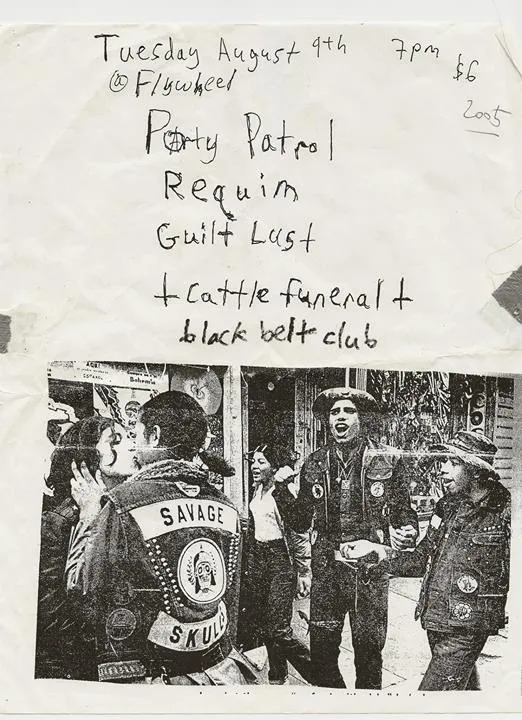 Tuesday August 9th 7pm
$6
@ Flywheel
2005
Party Patrol
Requim
Guilt Lust
+ cattle funeral +
black belt club
Bohemia
SAVAGE
SKULLS